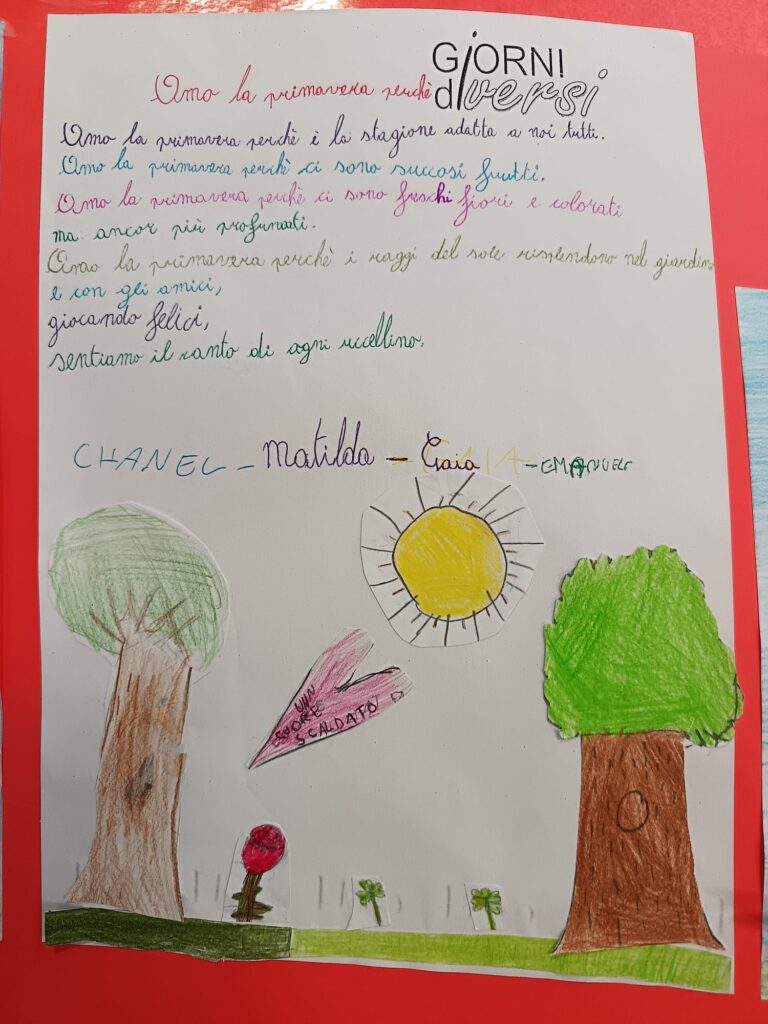 GiORN!
diversi
Amo la primavera perchè
Amo la primavera perchè è la stagione adatta a noi tutti.
Amo la primavera perchè ci sono succosi frutti.
Amo la primavera perchè ci sono freschi fiori e colorati
ma ancor più profumati.
Amo la primavera perchè i raggi del sole risplendono nel giardino
e con gli amici,
giocando felici,
sentiamo il canto di ogni uccellino.
CHANEL - Matilda - Gaia - EMANUELE
UN
CUORE
SCALDATO